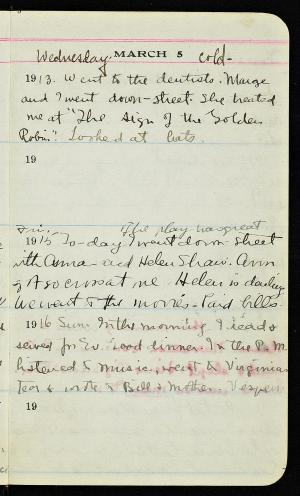 Wednesday. MARCH 5 cold-
1913. Went to the dentists. Marge
and I went down-street. She treated
me at "The Sign of the Golden
Robin". Looked at hats.
19
Fri. The play was great
1915 To-day I went down street
with Anna- and Helen Shaw. Ann
at me. Helen is darling
We went to the movies- Paid bills.
1916 Sun. In the morning I read &
served for Ev. Good dinner. In the P.M.
listened to music, went to Virginias
Tea & wrote to Bill & Mother. Vespers
19